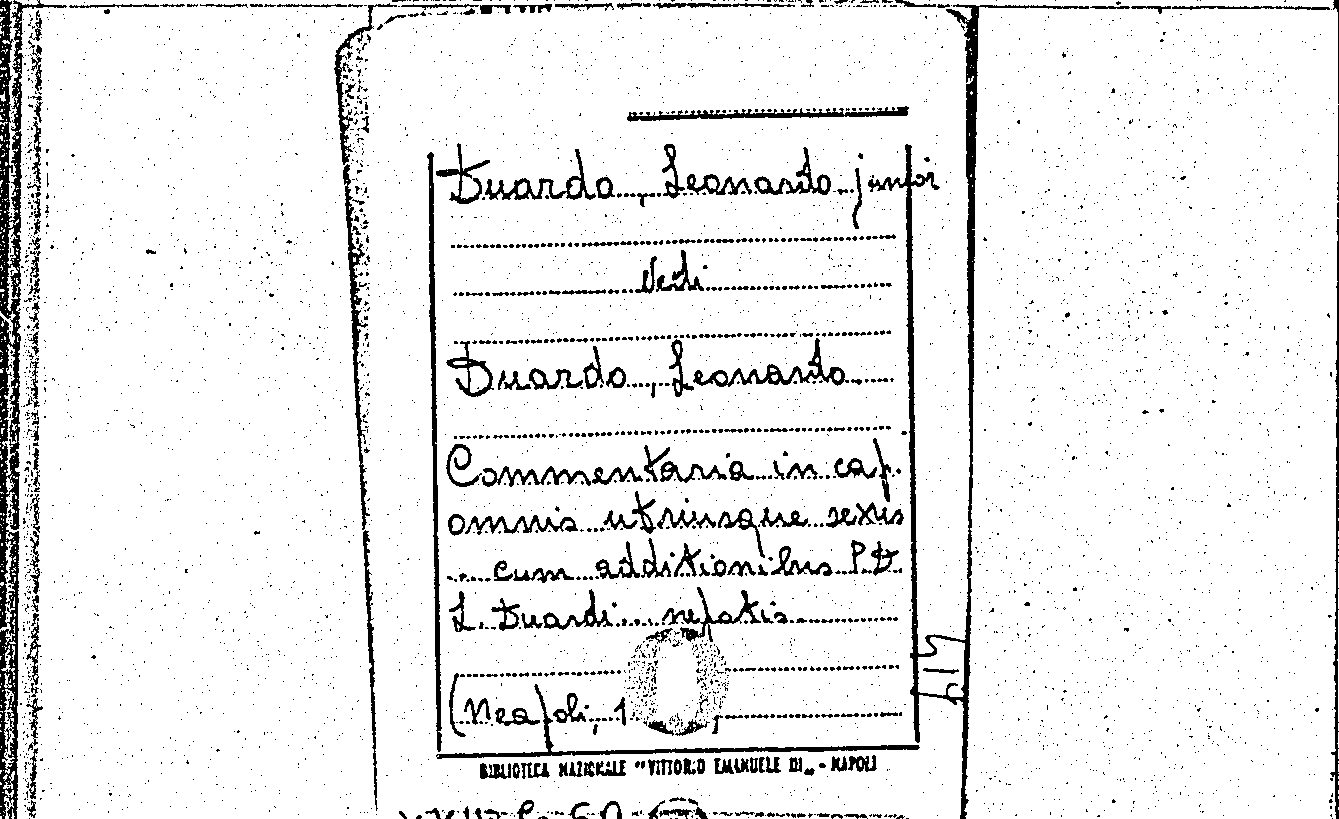 Duardo, Leonardo junior
Vedi
Duardo, Leonardo
Commentaria in cap.
omnis utriusque sexus
... cum additionibus P. D.
L. Duardi... nepotis
(Neapoli, 1
BIBLIOTECA NAZIONALE "VITTORIO EMANUELE III" - NAPOLI